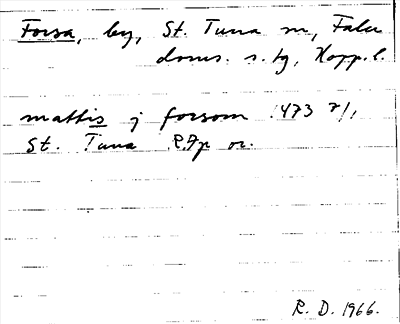 Forsa, by, St. Tuna sn, Falu
doms. s. tg, Kopp. l.
mattis j forsom 1473 2/1,
St. Tuna R.Fp or.
R. D. 1966.